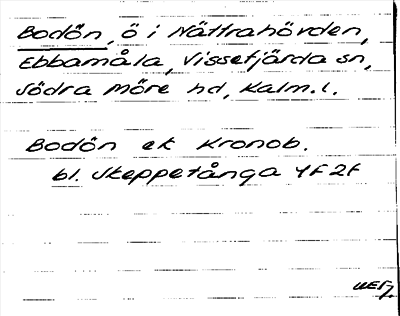 Bodön, ö i Nättrahörden,
Ebbamåla, Vissefjärda sn,
Södra Möre hd, Kalm.l.
Bodön ek Kronob.
bl. Skeppetånga 4F2f